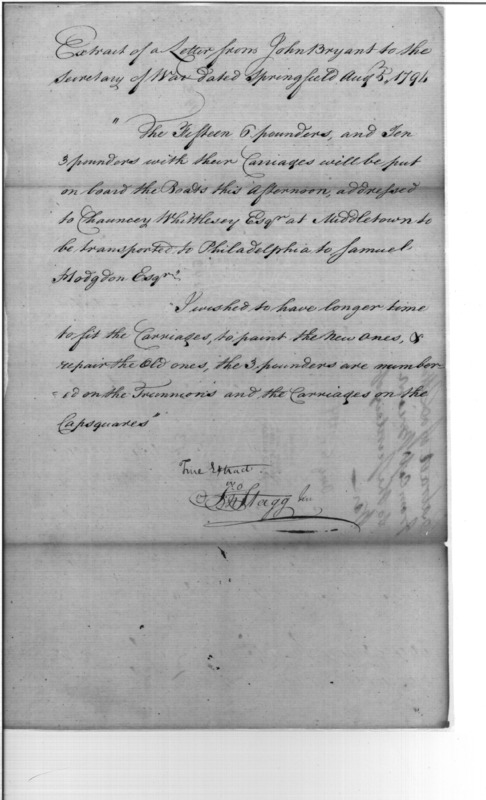 Extract of a Letter from John Bryant to the
Secretary of War dated Springfield Augt 5, 1794
"The Fifteen 6 pounders, and Ten
3 pounders with their Carriages will be put
on board the Boats this afternoon, addressed
to Chauncey Whittlesey Esqr at Middletown to
be transported to Philadelphia to Samuel
Hodgdon Esqr.
I wished to have longer time
to fit the Carriages, to paint the New ones, &
repair the Old ones, the 3 pounders are number
=ed on the Trunnions and the Carriages on the
Capsquares"
True Extract
Jno Stagg Junr